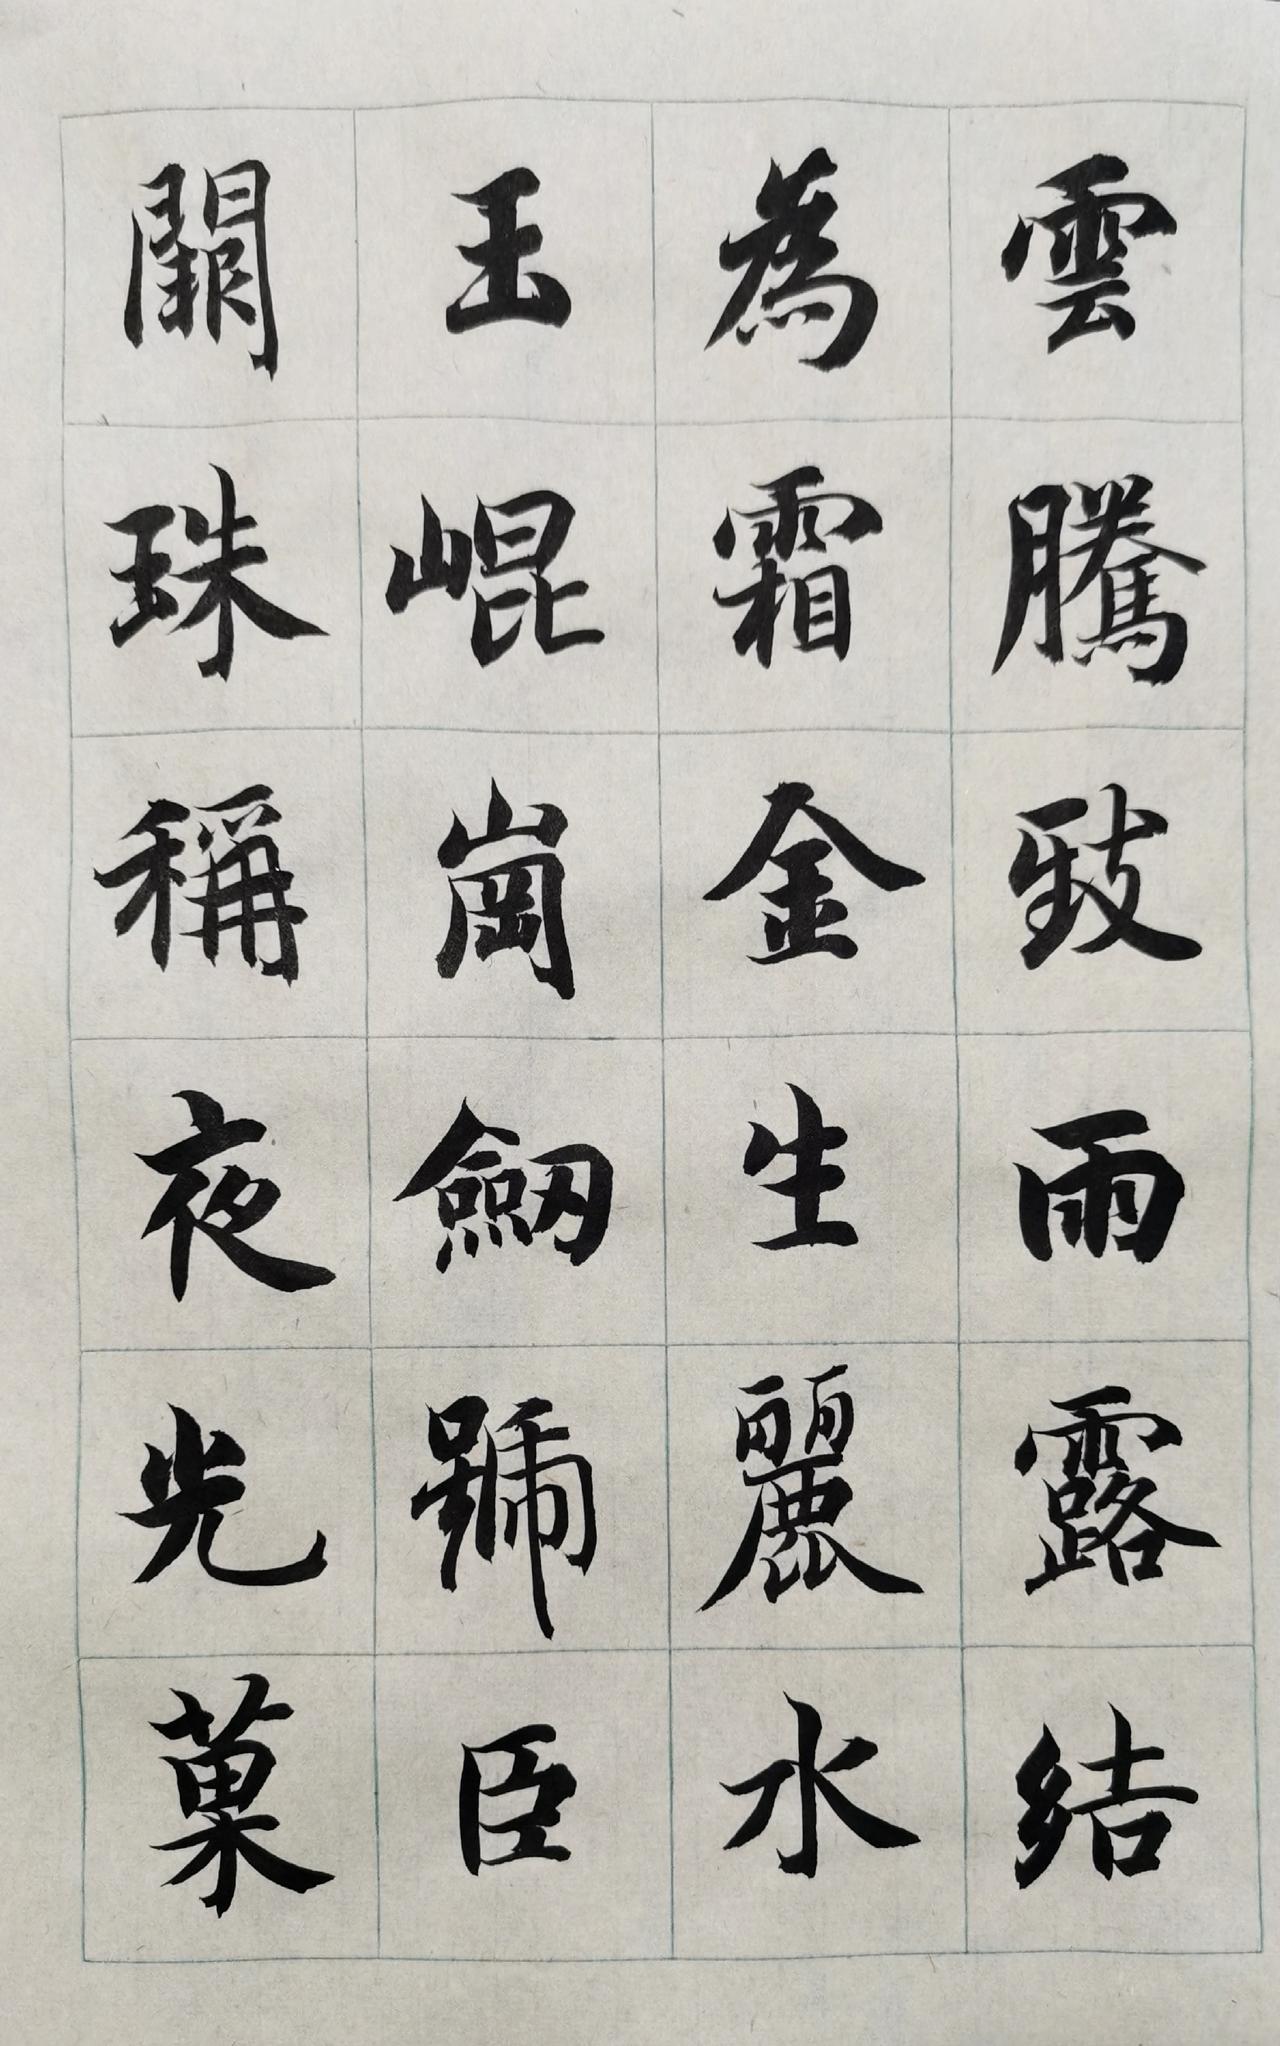 雲騰致雨露結
為霜金生麗水
玉崐崗劒號臣
闕珠稱夜光菓